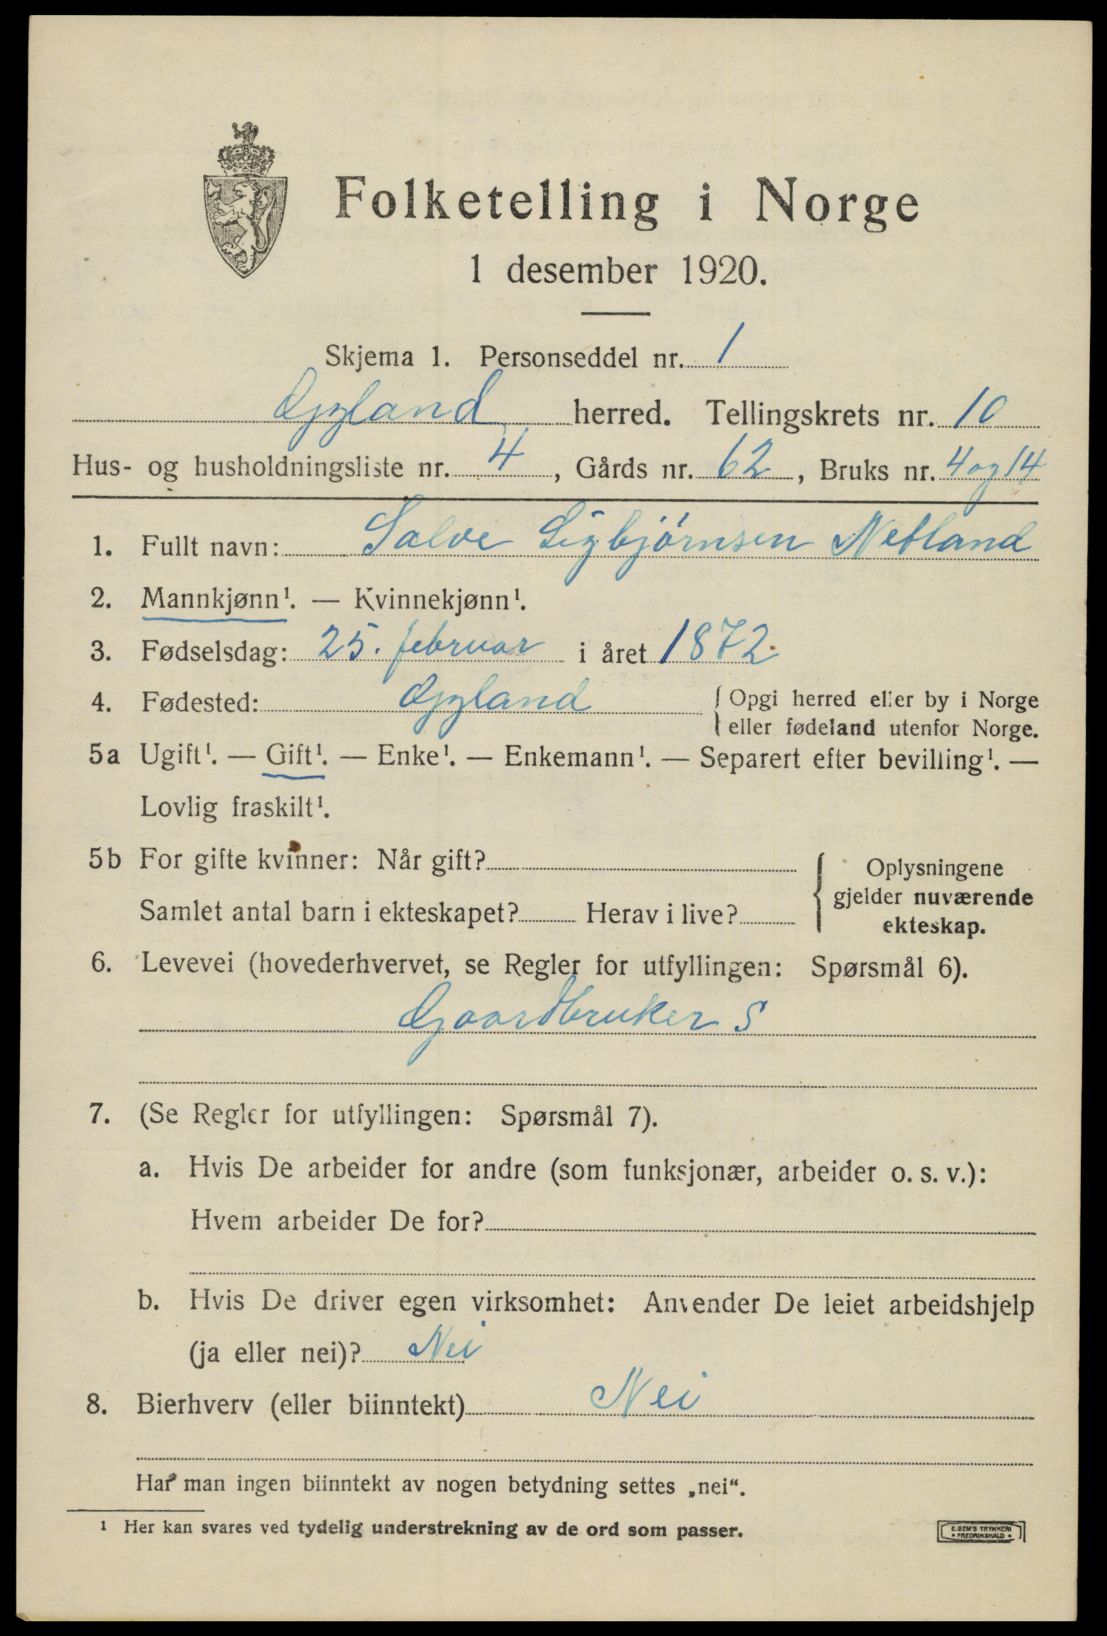 Folketelling i Norge
1 desember 1920.
Skjema 1. Personseddel nr. 1
Gyland herred. Tellingskrets nr. 10
Hus- og husholdningsliste nr. 4, Gårds nr. 62, Bruks nr. 4 og 14
1. Fullt navn: Salve Sigbjørnsen Netland
2. Mannkjønn¹. — Kvinnekjønn¹.
3. Fødselsdag: 25. februar i året 1872.
4. Fødested: Gyland { Opgi herred eller by i Norge
eller fødeland utenfor Norge.
5a Ugift¹. — Gift¹. — Enke¹. — Enkemann¹. — Separert efter bevilling¹. —
Lovlig fraskilt¹.
5b For gifte kvinner: Når gift?
Samlet antal barn i ekteskapet? Herav i live?
{ Oplysningene
gjelder nuværende
ekteskap.
6. Levevei (hovederhvervet, se Regler for utfyllingen: Spørsmål 6).
Gaardbruker S
7. (Se Regler for utfyllingen: Spørsmål 7).
a. Hvis De arbeider for andre (som funksjonær, arbeider o. s. v.):
Hvem arbeider De for?
b. Hvis De driver egen virksomhet: Anvender De leiet arbeidshjelp
(ja eller nei)? Nei
8. Bierhverv (eller biinntekt) Nei
Har man ingen biinntekt av nogen betydning settes „nei“.
¹ Her kan svares ved tydelig understrekning av de ord som passer.
E. SEM'S TRYKKERI
• FREDRIKSHALD •